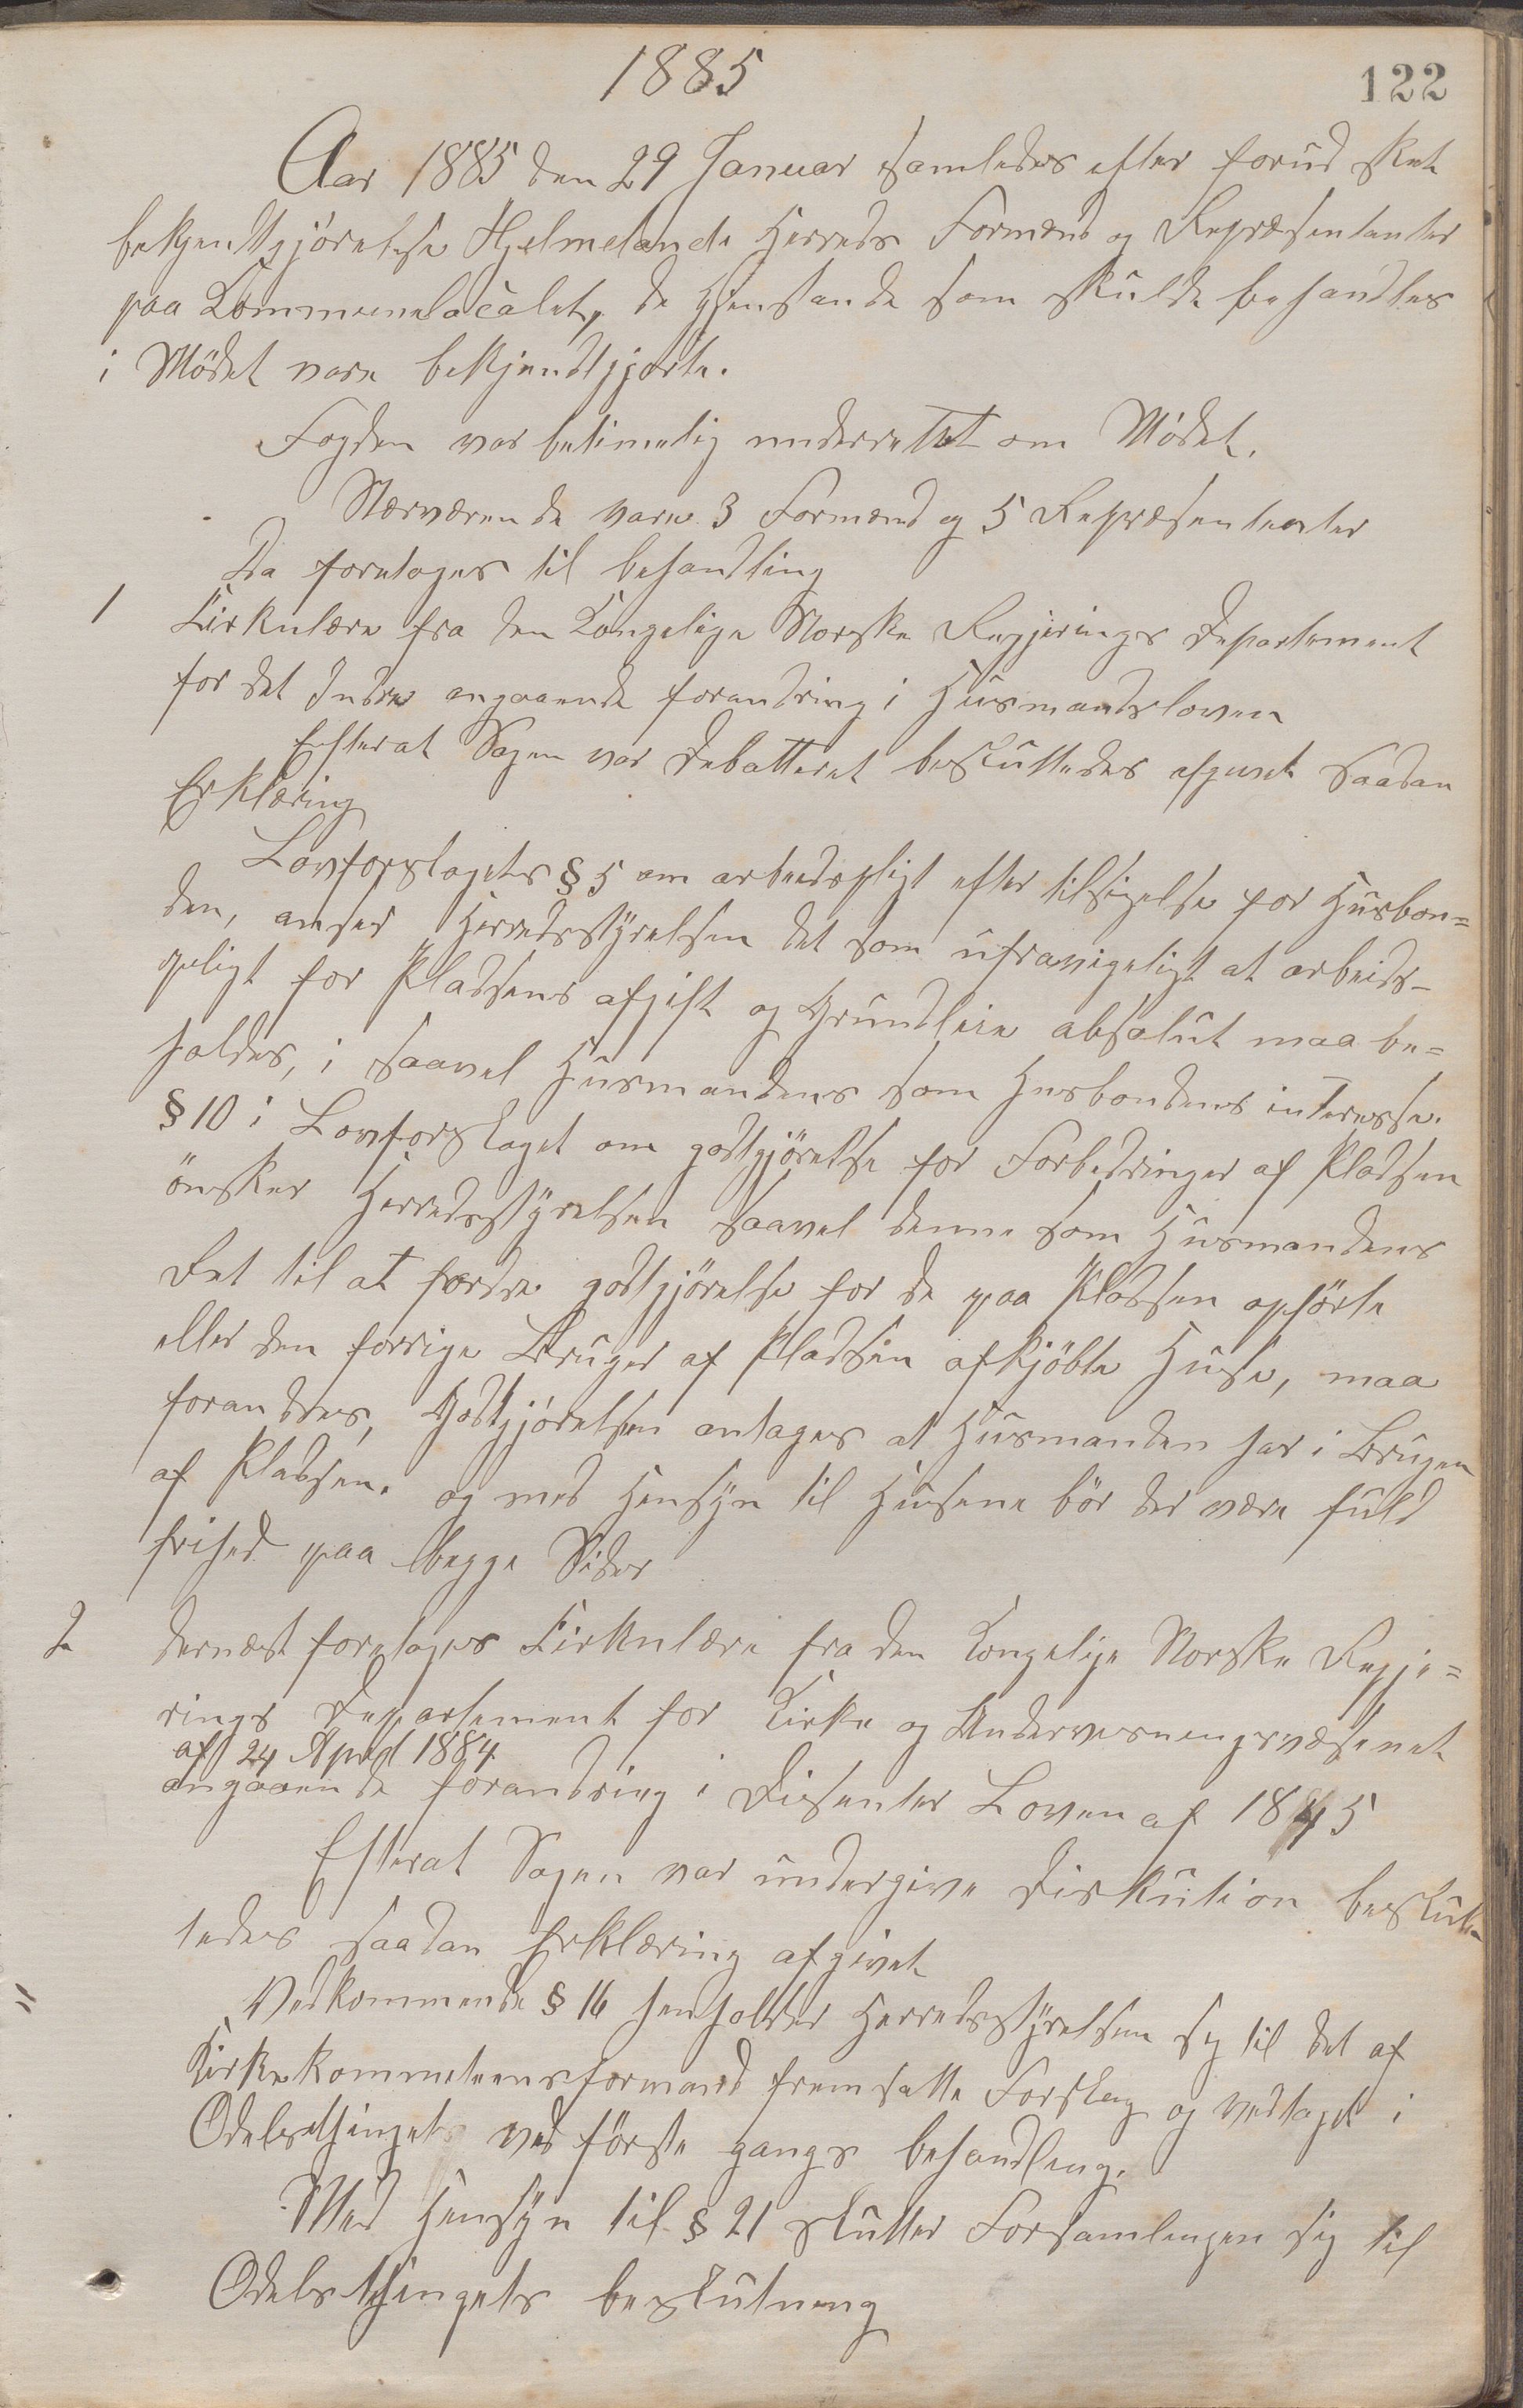 1885
122
Aar 1885 den 29 Januar samledes efter forud sket
bekjendtgjørelse Hjelmelands Herreds Formænd og Repræsentanter
paa Kommunelocalet, de Gjenstande som skulde behandles
i Mødet vare bekjendtgjorte.
Fogden var betimelig underrettet om Mødet.
Nærværende vare 3 Formænd og 5 Repræsentanter
Da foretoges til behandling
1 Cirkulære fra den Kongelige Norske Regjerings Departement
for det Indre angaaende forandring i Husmandsloven
Efterat Sagen var Debatteret besluttedes afgivet saadan
Erklæring
Lovforslagets § 5 om arbeidspligt efter tilsigelse for Husbon=
den, anser Herredsstyrelsen det som ufravigeligt at arbeids-
pligt for Pladsens afgift og Grundleie absolut maa be=
holdes, i saavel Husmandens som Husbondens interesse.
§ 10 i Lovforslaget om godtgjörelse for Forbedringer af Pladsen
önsker Herredsstyrelsen saavel denne som Husmandens
Ret til at fordre godtgjörelse for de paa Pladsen opförte
eller den forrige Bruger af Pladsen afkjöbte Huse, maa
forandres, Godtgjörelsen antages at Husmanden har i Brugen
af Pladsen. og med Hensyn til Husene bör der være fuld
frihed paa begge Sider
2 dernæst foretoges Cirkulære fra den Kongelige Norske Regje=
rings Departement for Kirke og Undervisningsvæsenet
af 24 April 1884
angaaende forandring i Disenter Loven af 1845
Efterat Sagen var undergive Diskution beslut=
tedes saadan Erklæring afgivet
" Vedkommende § 16 henholder Herredsstyrelsen sig til det af
Kirkekommeteensformand fremsatte Forslag og vedtaget i
Odelsthinget ved förste gangs behandling.
Med Hensyn til § 21 slutter Forsamlingen sig til
Odelsthingets beslutning